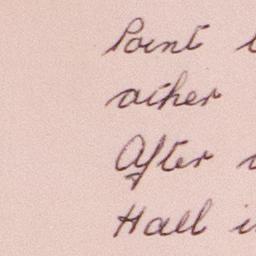 Point
other
After
Hall